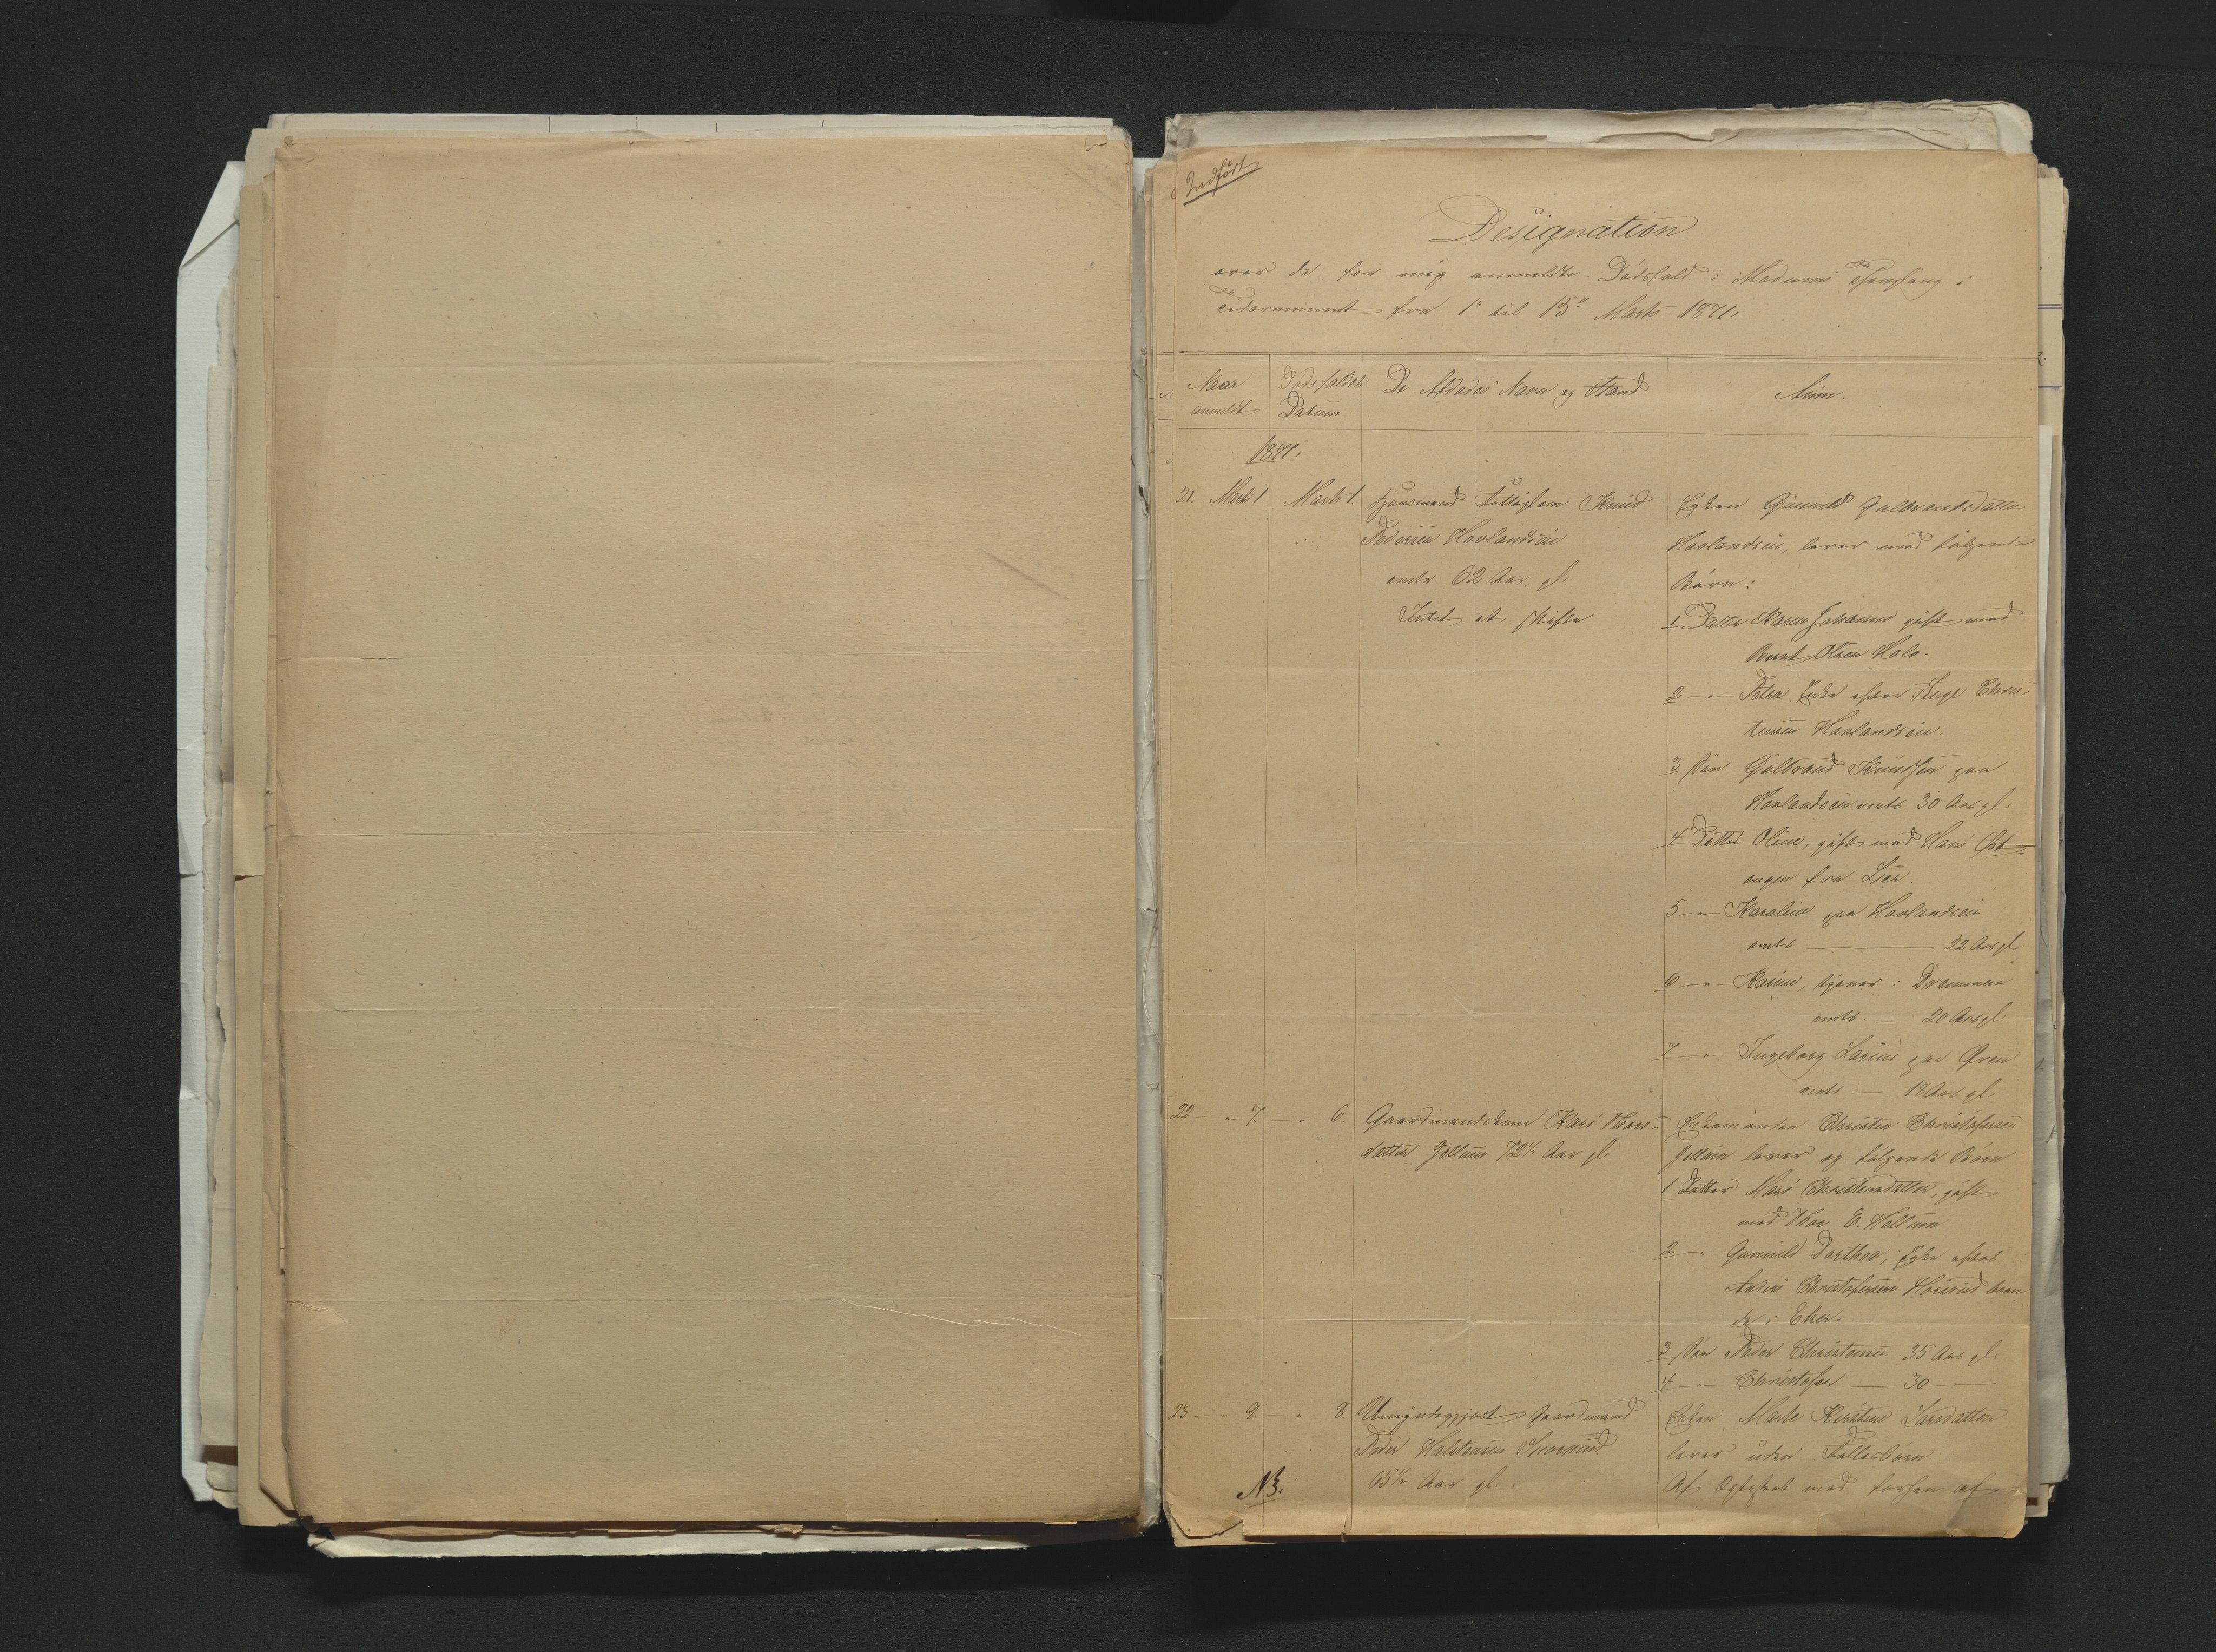 Indført
Designation
over de for mig anmeldte Dødsfald i Modums Thinglaug i
Tidsrummet fra 1ste til 15de Marts 1871.
Naar anmeldt
Dødsfaldets Datum
De Afdødes Navn og Stand
Anm.
1871.
21. Marts 1 Marts 1. Huusmand Fattiglem Knud
Pedersen Hovlandseie
omtr 62 Aar gl.
Intet at skifte
Enken Gunild Gulbrandsdatter
Hovlandseie, lever med følgende
Børn:
1 Datter Karen Johanne gift med
Bernt Olsen
2 - " - Petra Enke efter Inge Chris-
tensen Hovlandseie.
3 Søn Gulbrand Knudsen paa
Hovlandseie omtr 30 Aar gl.
4 Datter Oline, gift med Hans
fra Lier.
5 - " - Karoline paa Hovlandseie
omtr 22 Aar gl
6 - " - Karine, tjener i Drammen
omtr. 20 Aar gl.
7 - " - Ingeborg Larine paa Øren
omtr 18 Aar gl.
22 - " - 7. - " 6. Gaardmandskone Kari Thors-
datter Gjellum 72½ Aar gl.
Enkemanden Christen Christofersen
Gjellum lever og følgende Børn
1 Datter Mari Christensdatter, gift
med Thor E. Hellum
2 - " Gunild Dorthea, Enke efter
Anders Christofersen boen
de i Eker.
3 Søn Peder Christensen 35 Aar gl.
4 - " - Christofer - 30 - " -
23 - " 9 - " 8. Umyndiggjort Gaardmand
Peder Halstensen
65½ Aar gl.
Enken Marte Kirstine Larsdatter
lever uden Fællesbørn
Af Ægteskab med forhen af-
NB.